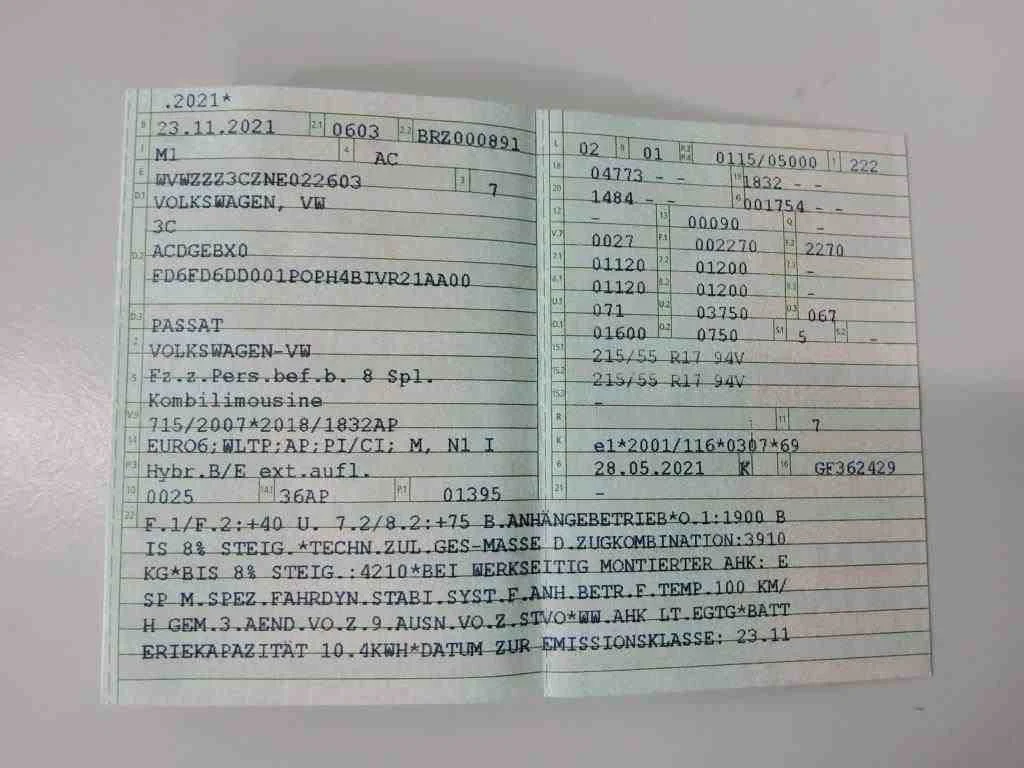 .2021*
B 23.11.2021 2.1 0603 2.2 BRZ000891
J M1 4 AC
E WVWZZZ3CZNE022603 3 7
D.1 VOLKSWAGEN, VW
3C
D.2 ACDGEBX0
FD6FD6DD001POPH4BIVR21AA00
D.3 PASSAT
2 VOLKSWAGEN-VW
5 Fz.z.Pers.bef.b. 8 Spl.
Kombilimousine
V.9 715/2007*2018/1832AP
14 EURO6;WLTP;AP;PI/CI; M, N1 I
P.3 Hybr.B/E ext.aufl.
10 0025 14.1 36AP P.1 01395
L 02 9 01 P.2 P.4 0115/05000 T 222
18 04773 - - 19 1832 - -
20 1484 - - G 001754 - -
12 - 13 00090 Q -
V.7 0027 F.1 002270 F.2 2270
7.1 01120 7.2 01200 7.3 -
8.1 01120 8.2 01200 8.3 -
U.1 071 U.2 03750 U.3 067
O.1 01600 O.2 0750 S.1 5 S.2 -
15.1 215/55 R17 94V
15.2 215/55 R17 94V
15.3 -
R 11 7
K e1*2001/116*0307*69
6 28.05.2021 K 16 GF362429
21 -
22 F.1/F.2:+40 U. 7.2/8.2:+75 B.ANHÄNGEBETRIEB*O.1:1900 B
IS 8% STEIG.*TECHN.ZUL.GES-MASSE D.ZUGKOMBINATION:3910
KG*BIS 8% STEIG.:4210*BEI WERKSEITIG MONTIERTER AHK: E
SP M.SPEZ.FAHRDYN.STABI.SYST.F.ANH.BETR.F.TEMP.100 KM/
H GEM.3.AEND.VO.Z.9.AUSN.VO.Z.STVO*WW.AHK LT.EGTG*BATT
ERIEKAPAZITÄT 10.4KWH*DATUM ZUR EMISSIONSKLASSE: 23.11